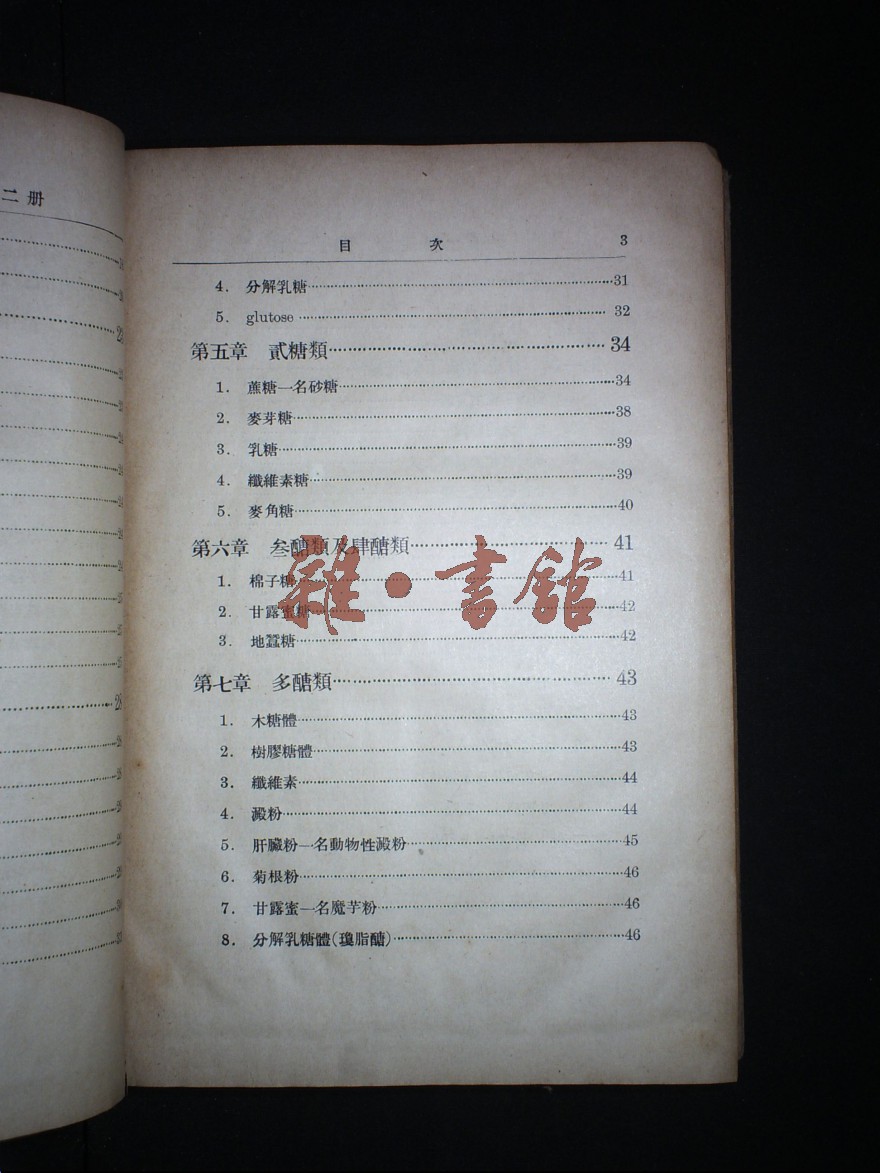 二册
目 次 3
4. 分解乳糖 31
5. glutose 32
第五章 貳糖類 34
1. 蔗糖一名砂糖 34
2. 麥芽糖 38
3. 乳糖 39
4. 纖維素糖 39
5. 麥角糖 40
第六章 叁醣類及肆醣類 41
1. 棉子糖 41
2. 甘露蜜糖 42
3. 地蠶糖 42
雜·書館
第七章 多醣類 43
1. 木糖體 43
2. 樹膠糖體 43
3. 纖維素 44
4. 澱粉 44
5. 肝臟粉一名動物性澱粉 45
6. 菊根粉 46
7. 甘露蜜一名魔芋粉 46
8. 分解乳糖體(瓊脂醣) 46